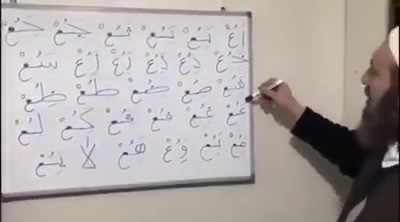 اُعْ بُعْ تُعْ ثُعْ جُعْ حُعْ
خُعْ دُعْ ذُعْ رُعْ زُعْ سُعْ
شُعْ صُعْ ضُعْ طُعْ ظُعْ
عُعْ غُعْ فُعْ قُعْ كُعْ لُعْ
مُعْ نُعْ وُعْ هُعْ لَا يُعْ